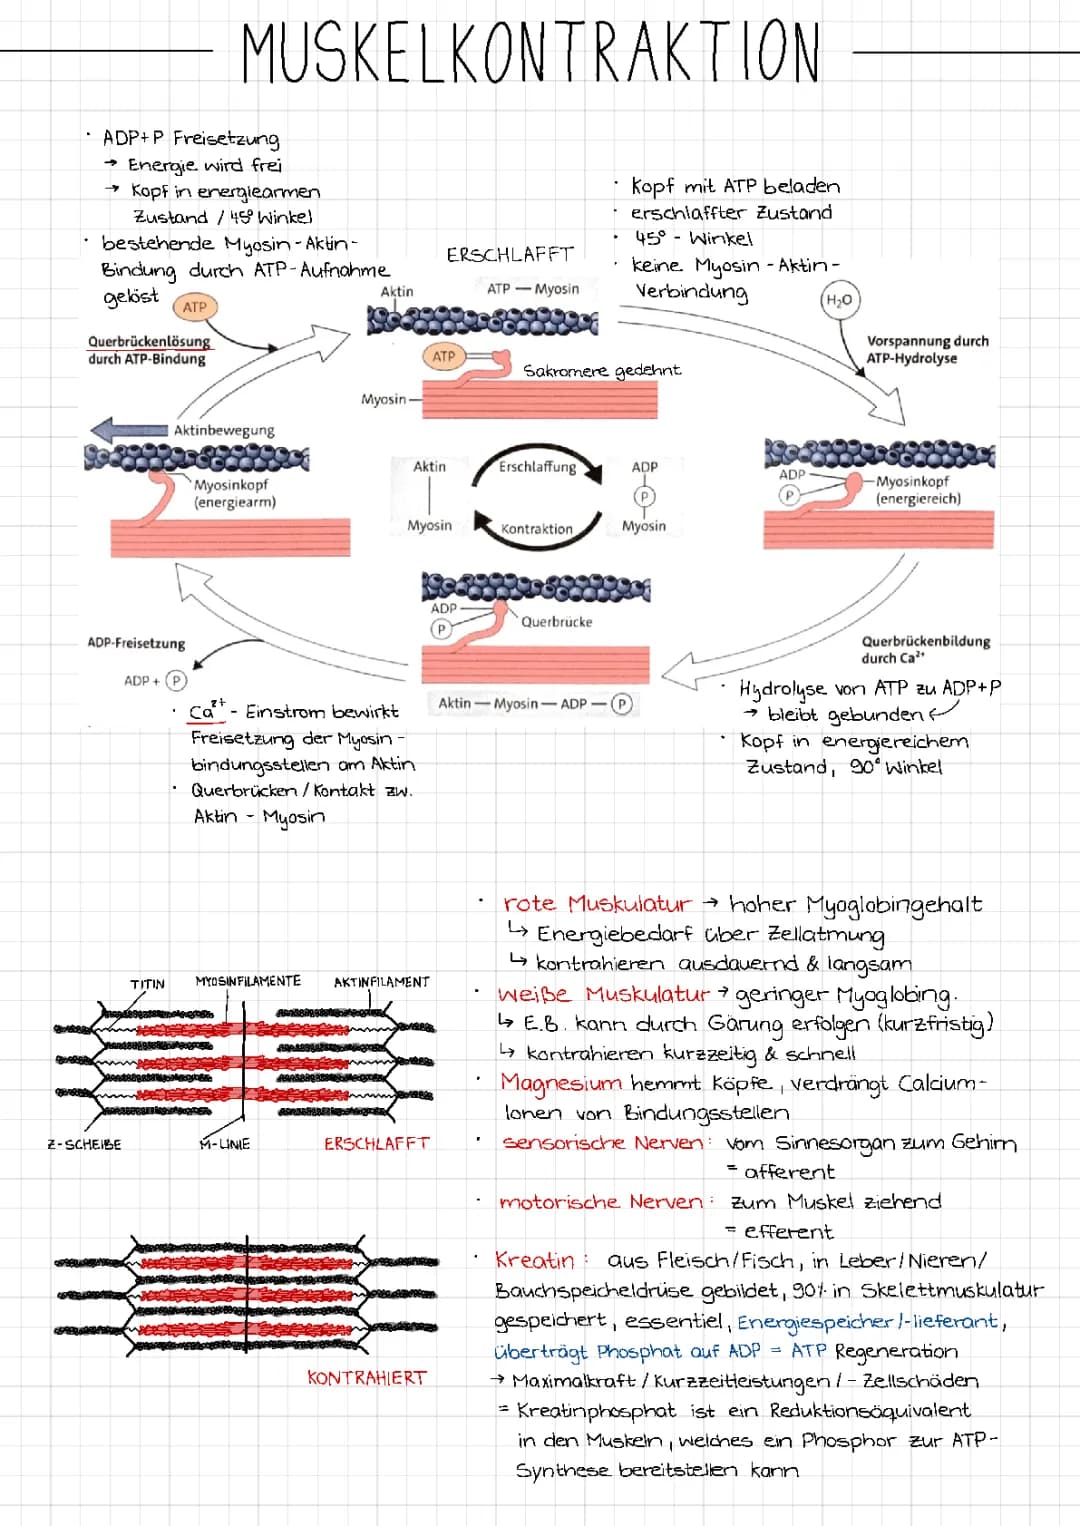 MUSKELKONTRAKTION
· ADP+P Freisetzung
→ Energie wird frei
→ Kopf in energiearmen
Zustand / 45° Winkel
· bestehende Myosin-Aktin-
Bindung durch ATP-Aufnahme
gelöst
ATP
Querbrückenlösung
durch ATP-Bindung
ERSCHLAFFT
Aktin
ATP — Myosin
ATP
Sakromere gedehnt
Myosin
· Kopf mit ATP beladen
· erschlaffter Zustand
· 45° - Winkel
· keine Myosin - Aktin-
Verbindung
H₂O
Vorspannung durch
ATP-Hydrolyse
Aktinbewegung
Myosinkopf
(energiearm)
Aktin
Myosin
Erschlaffung
Kontraktion
ADP
P
Myosin
ADP
P
Myosinkopf
(energiereich)
ADP
P
Querbrücke
Aktin — Myosin — ADP — P
ADP-Freisetzung
ADP + P
Querbrückenbildung
durch Ca²⁺
· Ca²⁺ - Einstrom bewirkt
Freisetzung der Myosin-
bindungsstellen am Aktin
· Querbrücken / Kontakt zw.
Aktin - Myosin
· Hydrolyse von ATP zu ADP+P
→ bleibt gebunden ↙
· Kopf in energiereichem
Zustand, 90° Winkel
TITIN
MYOSINFILAMENTE
AKTINFILAMENT
Z-SCHEIBE
M-LINIE
ERSCHLAFFT
KONTRAHIERT
· rote Muskulatur → hoher Myoglobingehalt
↳ Energiebedarf über Zellatmung
↳ kontrahieren ausdauernd & langsam
· weiße Muskulatur → geringer Myoglobing.
↳ E.B. kann durch Gärung erfolgen (kurzfristig)
↳ kontrahieren kurzzeitig & schnell
· Magnesium hemmt Köpfe, verdrängt Calcium-
Ionen von Bindungsstellen
· sensorische Nerven: vom Sinnesorgan zum Gehirn
= afferent
· motorische Nerven: zum Muskel ziehend
= efferent
· Kreatin: aus Fleisch/Fisch, in Leber/Nieren/
Bauchspeicheldrüse gebildet, 90% in Skelettmuskulatur
gespeichert, essentiel, Energiespeicher/-lieferant,
überträgt Phosphat auf ADP = ATP Regeneration
→ Maximalkraft / Kurzzeitleistungen / - Zellschäden
= Kreatinphosphat ist ein Reduktionsäquivalent
in den Muskeln, welches ein Phosphor zur ATP-
Synthese bereitstellen kann